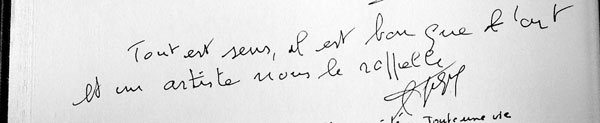 Tout est sens, il est bon que l'art
et un artiste nous le rappelle
Toute une vie